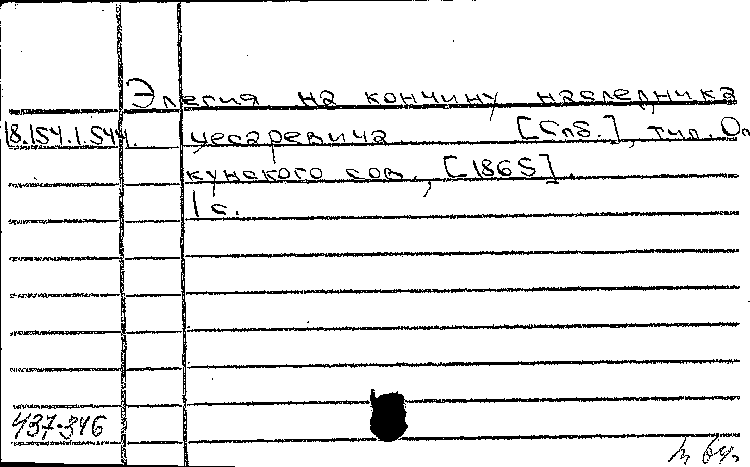 Элегия на кончину наследника
18.154.1.544. цесаревича [Спб.], тип. Оп
кунского сов., [1865].
1 с.
437-346